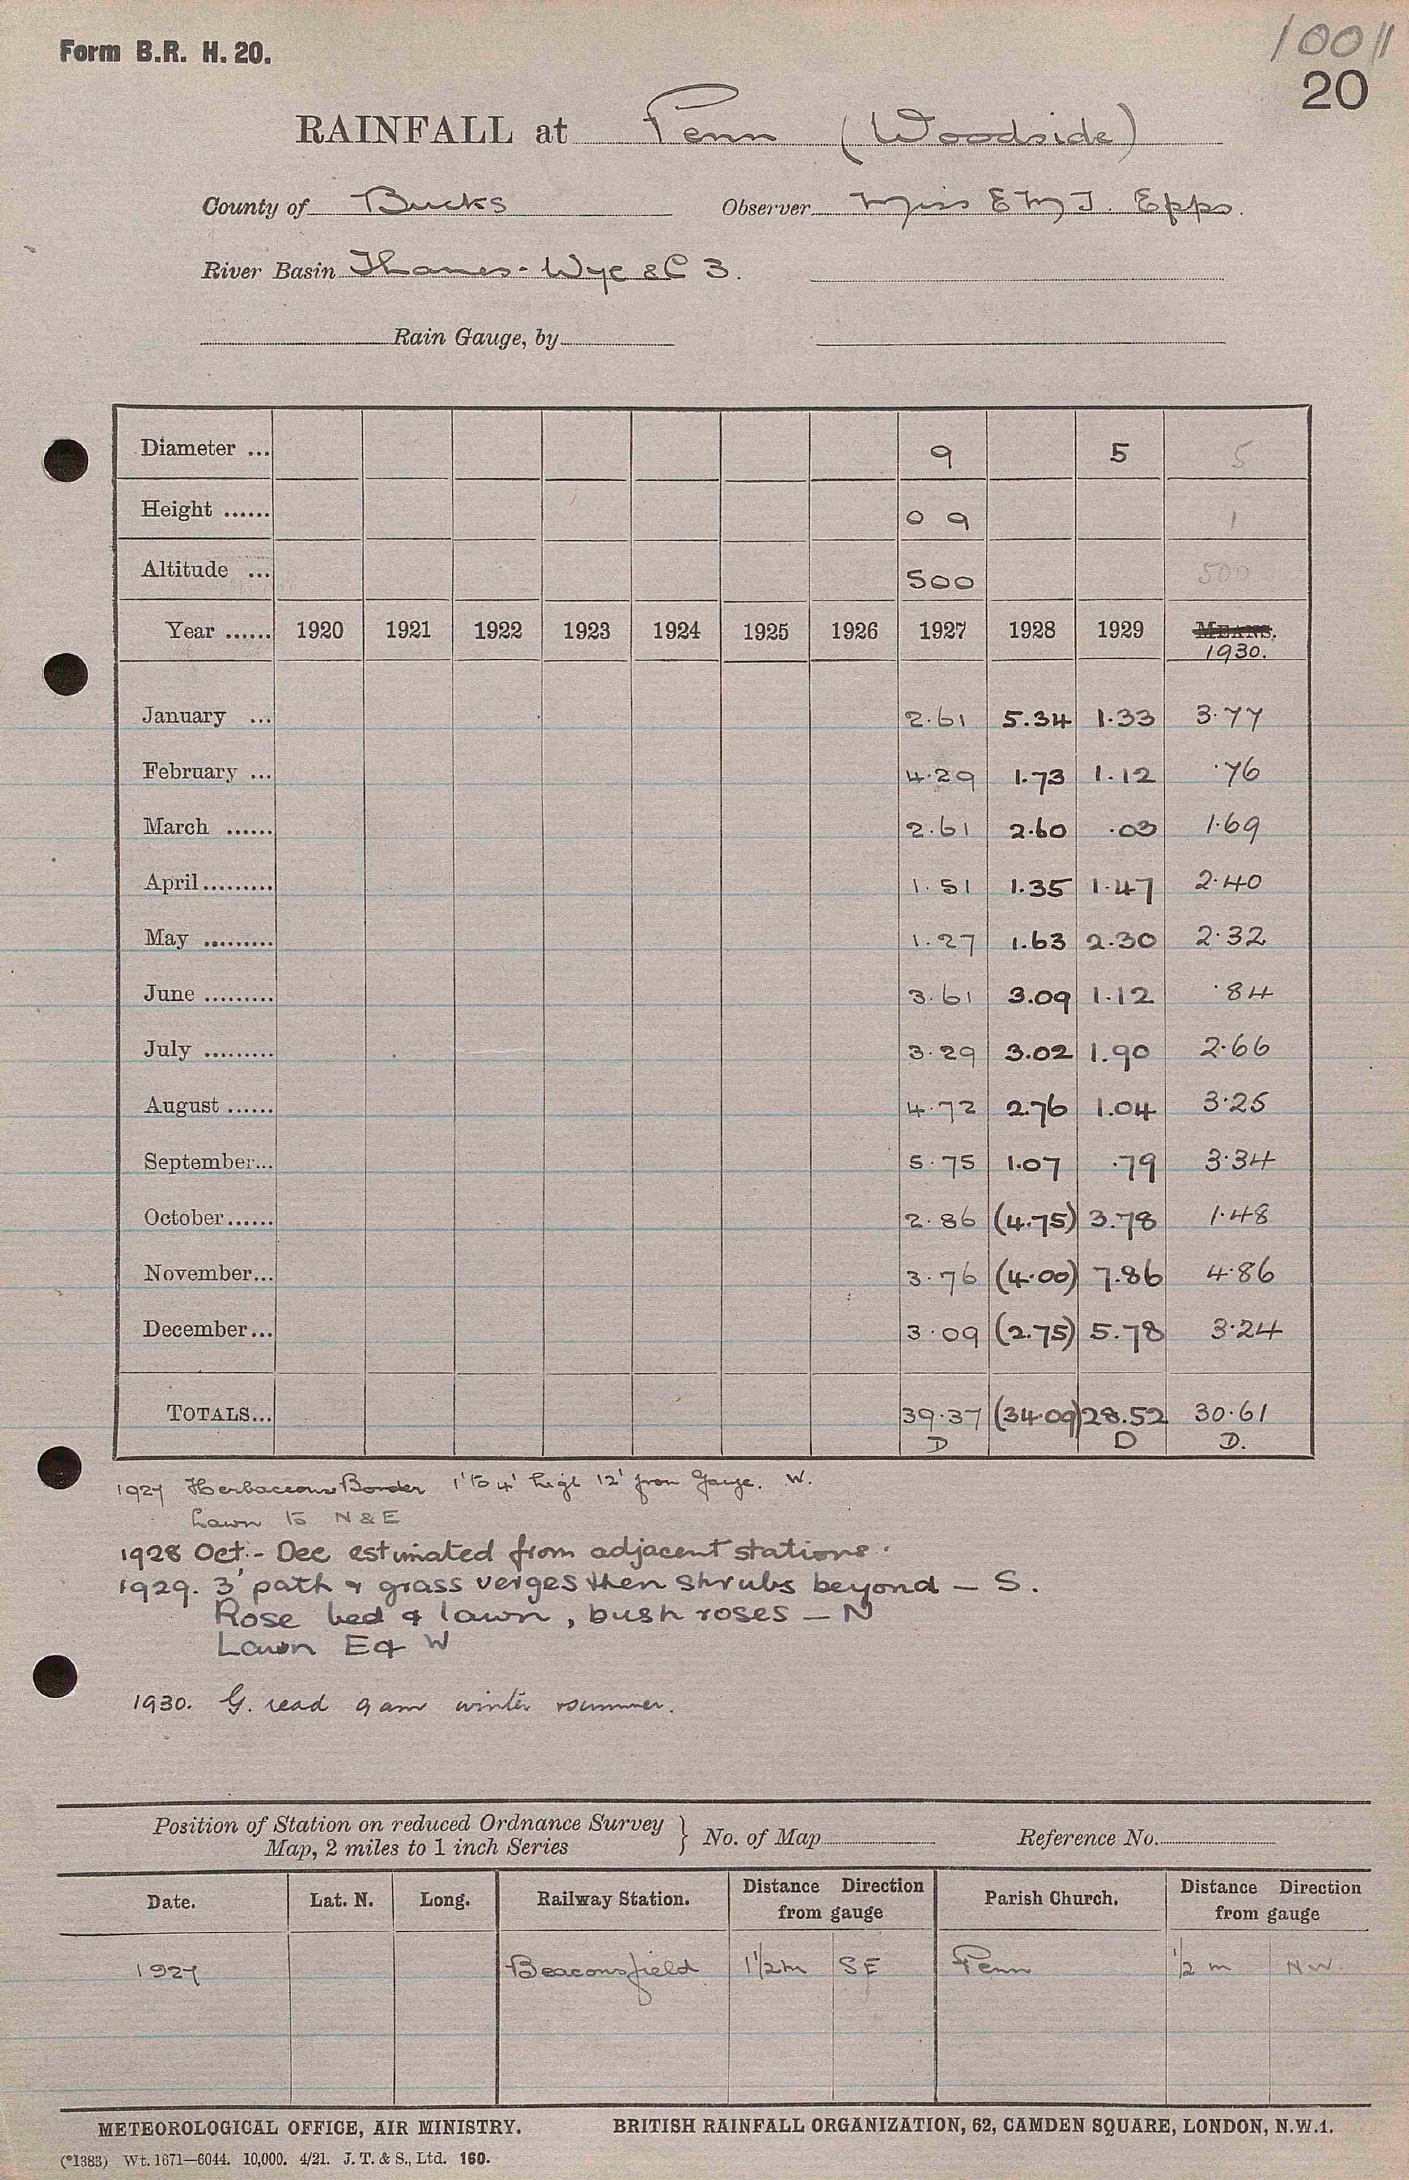 Form B.R. H. 20.
10011
20
RAINFALL at Penn (Woodside)
County of Bucks Observer Miss E M J. Epps.
River Basin Thames - Wye &C 3.
Rain Gauge, by
Diameter ... 9 5 5
Height ...... 0 9 1
Altitude ... 500 500
Year ...... 1920 1921 1922 1923 1924 1925 1926 1927 1928 1929 MEANS.
1930.
January ... 2.61 5.34 1.33 3.77
February ... 4.29 1.73 1.12 .76
March ...... 2.61 2.60 .03 1.69
April ......... 1.51 1.35 1.47 2.40
May ......... 1.27 1.63 2.30 2.32
June ......... 3.61 3.09 1.12 .84
July ......... 3.29 3.02 1.90 2.66
August ...... 4.72 2.76 1.04 3.25
September... 5.75 1.07 .79 3.34
October...... 2.86 (4.75) 3.78 1.48
November... 3.76 (4.00) 7.86 4.86
December... 3.09 (2.75) 5.78 3.24
TOTALS... 39.37 (34.09) 28.52 30.61
D D D.
1927 Herbaceous Border 1' to 4' high 12' from Gauge. W.
Lawn to N & E
1928 Oct. - Dec estimated from adjacent stations.
1929. 3' path & grass verges then shrubs beyond - S.
Rose bed & lawn, bush roses - N
Lawn E & W
1930. G. read 9 am winter & summer.
Position of Station on reduced Ordnance Survey
Map, 2 miles to 1 inch Series } No. of Map Reference No.
Date. Lat. N. Long. Railway Station. Distance Direction from gauge Parish Church. Distance Direction from gauge
1927 Beaconsfield 1 1/2 m SE Penn 1/2 m NW.
METEOROLOGICAL OFFICE, AIR MINISTRY. BRITISH RAINFALL ORGANIZATION, 62, CAMDEN SQUARE, LONDON, N.W.1.
(*1383) Wt. 1671—6044. 10,000. 4/21. J. T. & S., Ltd. 160.